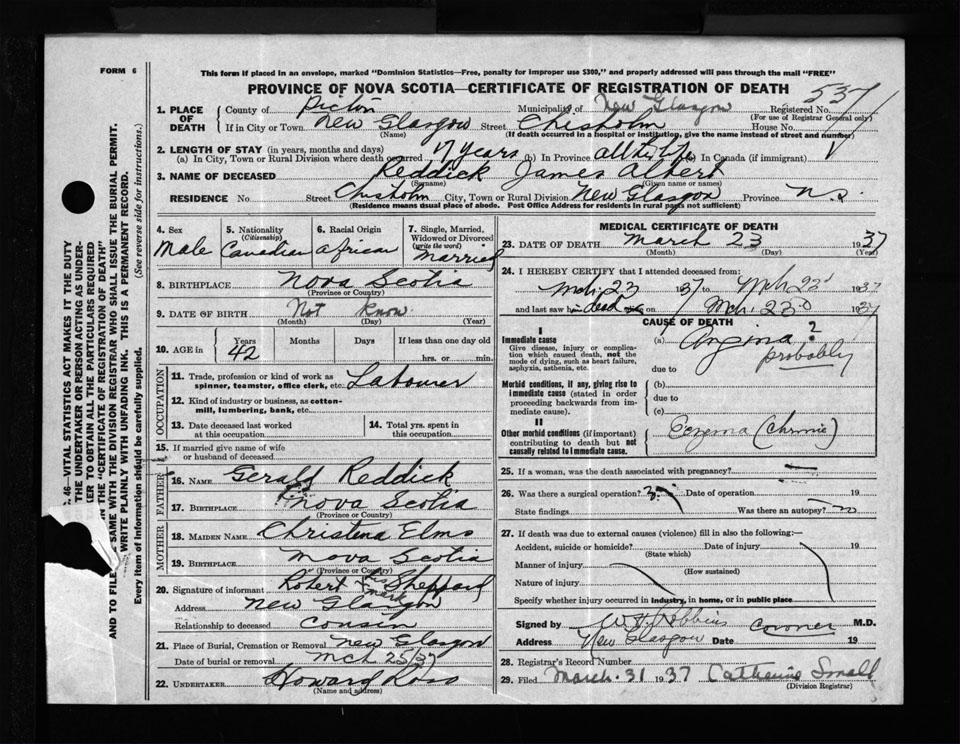 FORM 6
This form if placed in an envelope, marked "Dominion Statistics—Free, penalty for improper use $300," and properly addressed will pass through the mail "FREE"
PROVINCE OF NOVA SCOTIA—CERTIFICATE OF REGISTRATION OF DEATH
537
1. PLACE OF DEATH
County of Pictou Municipality of New Glasgow Registered No.
(For use of Registrar General only)
If in City or Town New Glasgow Street Chisholm House No.
(Name) (If death occurred in a hospital or institution, give the name instead of street and number)
2. LENGTH OF STAY (in years, months and days)
(a) In City, Town or Rural Division where death occurred 17 years (b) In Province all his life (c) In Canada (if immigrant)
3. NAME OF DECEASED Reddick James Albert
(Surname) (Given name or names)
RESIDENCE No. Street Chisholm City, Town or Rural Division New Glasgow Province N.S.
(Residence means usual place of abode. Post Office Address for residents in rural parts not sufficient)
4. Sex
Male
5. Nationality
(Citizenship)
Canadian
6. Racial Origin
African
7. Single, Married, Widowed or Divorced
(Write the word)
Married
8. BIRTHPLACE Nova Scotia
(Province or Country)
9. DATE OF BIRTH Not know
(Month) (Day) (Year)
10. AGE in
Years Months Days If less than one day old
42 hrs. or min.
OCCUPATION
11. Trade, profession or kind of work as spinner, teamster, office clerk, etc. Labourer
12. Kind of industry or business, as cotton-mill, lumbering, bank, etc.
13. Date deceased last worked at this occupation
14. Total yrs. spent in this occupation
15. If married give name of wife or husband of deceased
FATHER
16. NAME Gerald Reddick
17. BIRTHPLACE Nova Scotia
(Province or Country)
MOTHER
18. MAIDEN NAME Christena Elms
19. BIRTHPLACE Nova Scotia
(Province or Country)
20. Signature of informant Robert his mark Sheppard
Address New Glasgow
Relationship to deceased Cousin
21. Place of Burial, Cremation or Removal New Glasgow
Date of burial or removal Mch 25/37
22. UNDERTAKER Howard Ross
(Name and address)
MEDICAL CERTIFICATE OF DEATH
23. DATE OF DEATH March 23 1937
(Month) (Day) (Year)
24. I HEREBY CERTIFY that I attended deceased from:
Mch. 23 1937 to Mch 23 1937
and last saw h dead on Mch. 23 1937
CAUSE OF DEATH
I
Immediate cause
Give disease, injury or complication which caused death, not the mode of dying, such as heart failure, asphyxia, asthenia, etc.
(a) Angina? probably
due to
Morbid conditions, if any, giving rise to immediate cause (stated in order proceeding backwards from immediate cause).
(b)
due to
(c)
II
Other morbid conditions (if important) contributing to death but not causally related to immediate cause.
Eczema (Chronic)
25. If a woman, was the death associated with pregnancy?
26. Was there a surgical operation? Date of operation 19
State findings Was there an autopsy? no
27. If death was due to external causes (violence) fill in also the following:—
Accident, suicide or homicide? Date of injury 19
(State which)
Manner of injury
(How sustained)
Nature of injury
Specify whether injury occurred in industry, in home, or in public place
Signed by Robbins Coroner M.D.
Address New Glasgow Date 19
28. Registrar's Record Number
29. Filed March. 31 1937 Catherine Small
(Division Registrar)
46—VITAL STATISTICS ACT MAKES IT THE DUTY
THE UNDERTAKER OR PERSON ACTING AS UNDER-
ER TO OBTAIN ALL THE PARTICULARS REQUIRED
THE "CERTIFICATE OF REGISTRATION OF DEATH"
AND TO FILE SAME WITH THE DIVISION REGISTRAR WHO SHALL ISSUE THE BURIAL PERMIT.
WRITE PLAINLY WITH UNFADING INK. THIS IS A PERMANENT RECORD.
Every item of information should be carefully supplied. (See reverse side for instructions.)